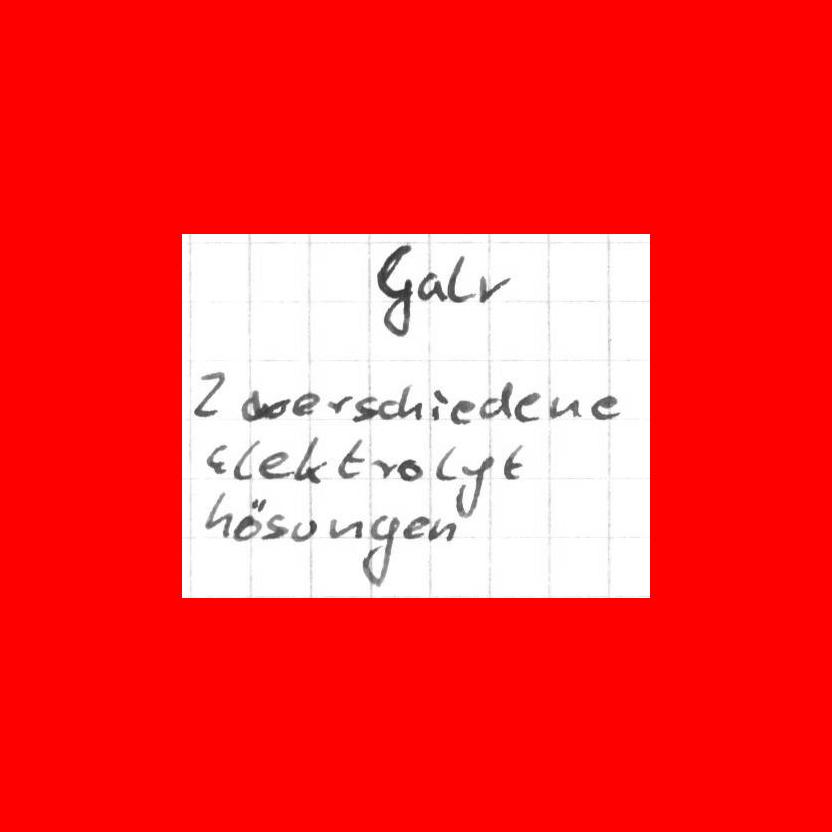 Galv
2 verschiedene
Elektrolyt
hösungen